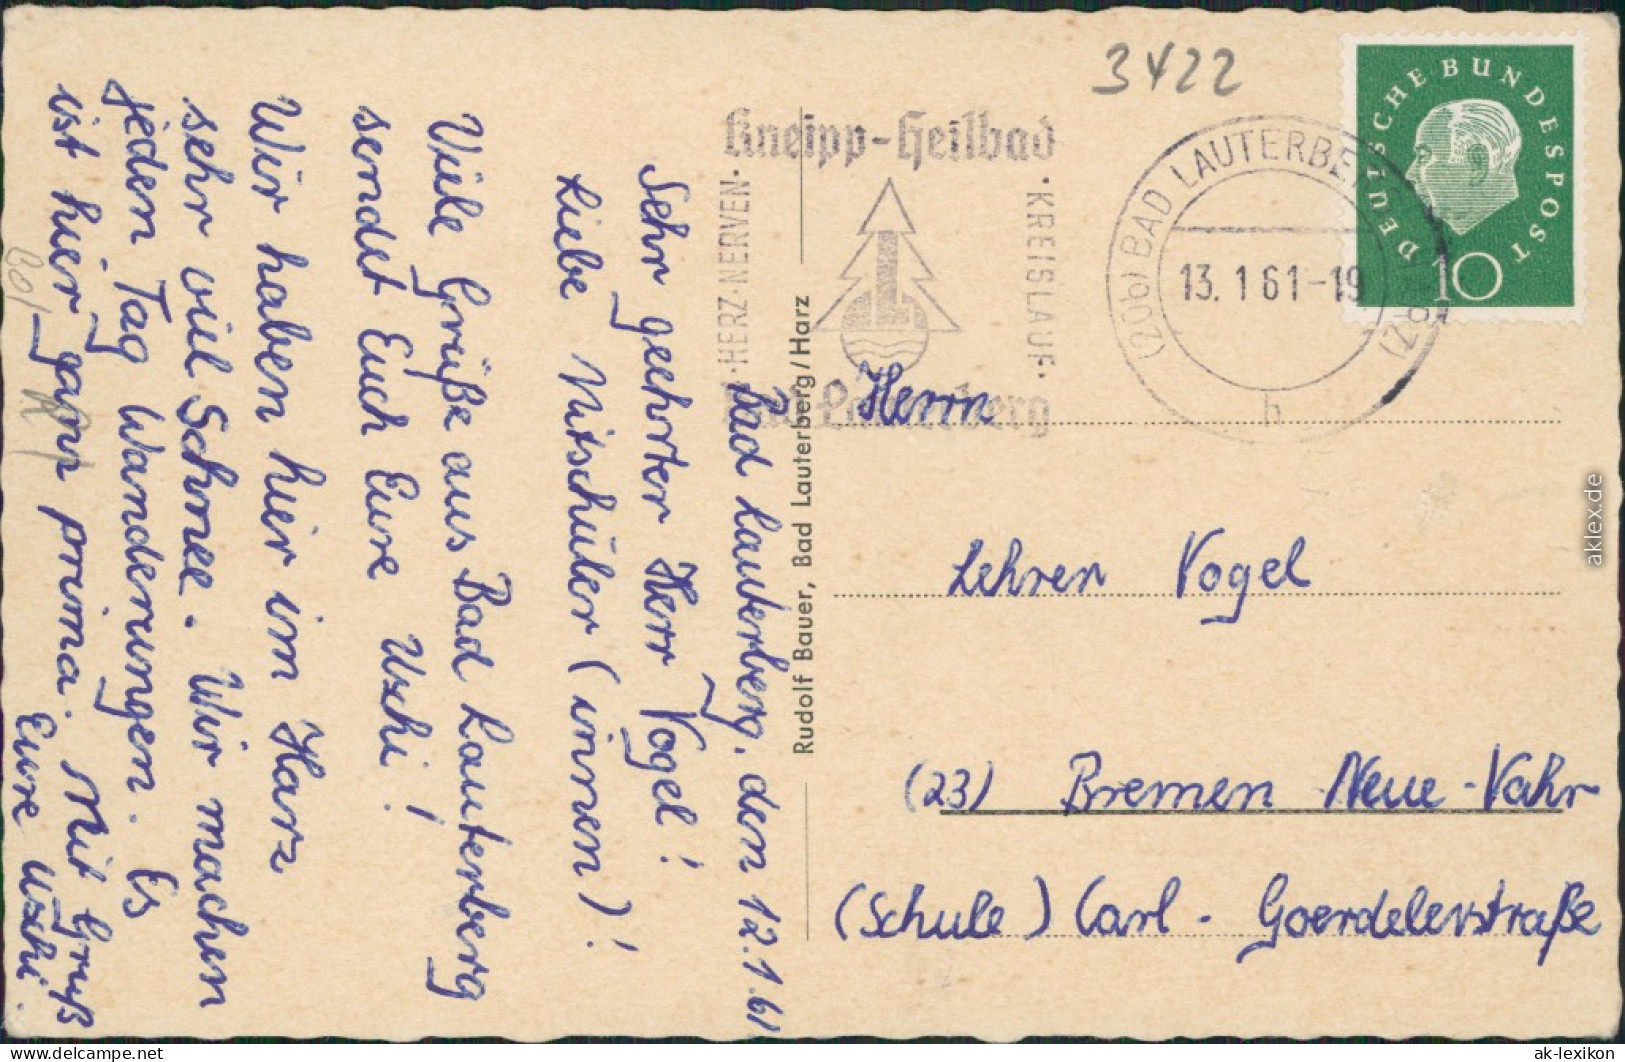 3422
Kneipp-Heilbad
·HERZ·NERVEN·
·KREISLAUF·
Bad Lauterberg
(20b) BAD LAUTERBE
13.1.61-19
(20b)
h
DEUTSCHE BUNDESPOST
10
Rudolf Bauer, Bad Lauterberg/Harz
Bad Lauterberg, den 12.1.61
Sehr geehrter Herr Vogel!
Liebe Mitschüler (innen)!
Viele Grüße aus Bad Lauterberg
sendet Euch Eure Uschi!
Wir haben hier im Harz
sehr viel Schnee. Wir machen
jeden Tag Wanderungen. Es
ist hier ganz prima. Mit Gruß
Eure Uschi.
Herrn
Lehrer Vogel
(23) Bremen Neue-Vahr
(Schule) Carl-Goerdelerstraße
aklex.de
www.delcampe.net
ak-lexikon